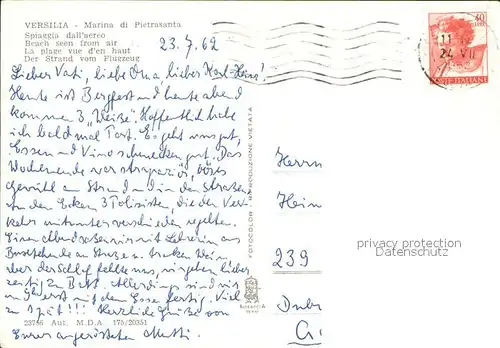 VERSILIA - Marina di Pietrasanta
Spiaggia dall'aereo
Beach seen from air
La plage vue d'en haut
Der Strand vom Flugzeug
23.7.62
Lieber Vati, liebe Oma, lieber Karl-Heinz!
Heute ist Bergfest und heute abend
kommen 3 "Weiße". Hoffentlich habe
ich bald mal Post. Es geht uns gut,
Essen und Vino schmecken gut. Das
Wochenende war strapaziös, böses
Gewühl am Strand und in den Straßen
An den Ecken 3 Polizisten, die den Ver-
kehr mitunter verschieden regelten.
Einen Abend saßen wir mit Lehrerin aus
am Strand und tranken Wein
aber der Schlaf fehlte uns, wir gehen lieber
zeitig zu Bett. Allerdings sind wir
erst mit dem Essen fertig. Viel
zu spät!!! Herzliche Grüße von
Eurer Mutti.
23786 Aut. M.D.A. 175/20351
FOTOCOLOR RIPRODUZIONE VIETATA
11
24 VII
40
POSTE ITALIANE
Herrn
Hein
239
privacy protection
Datenschutz